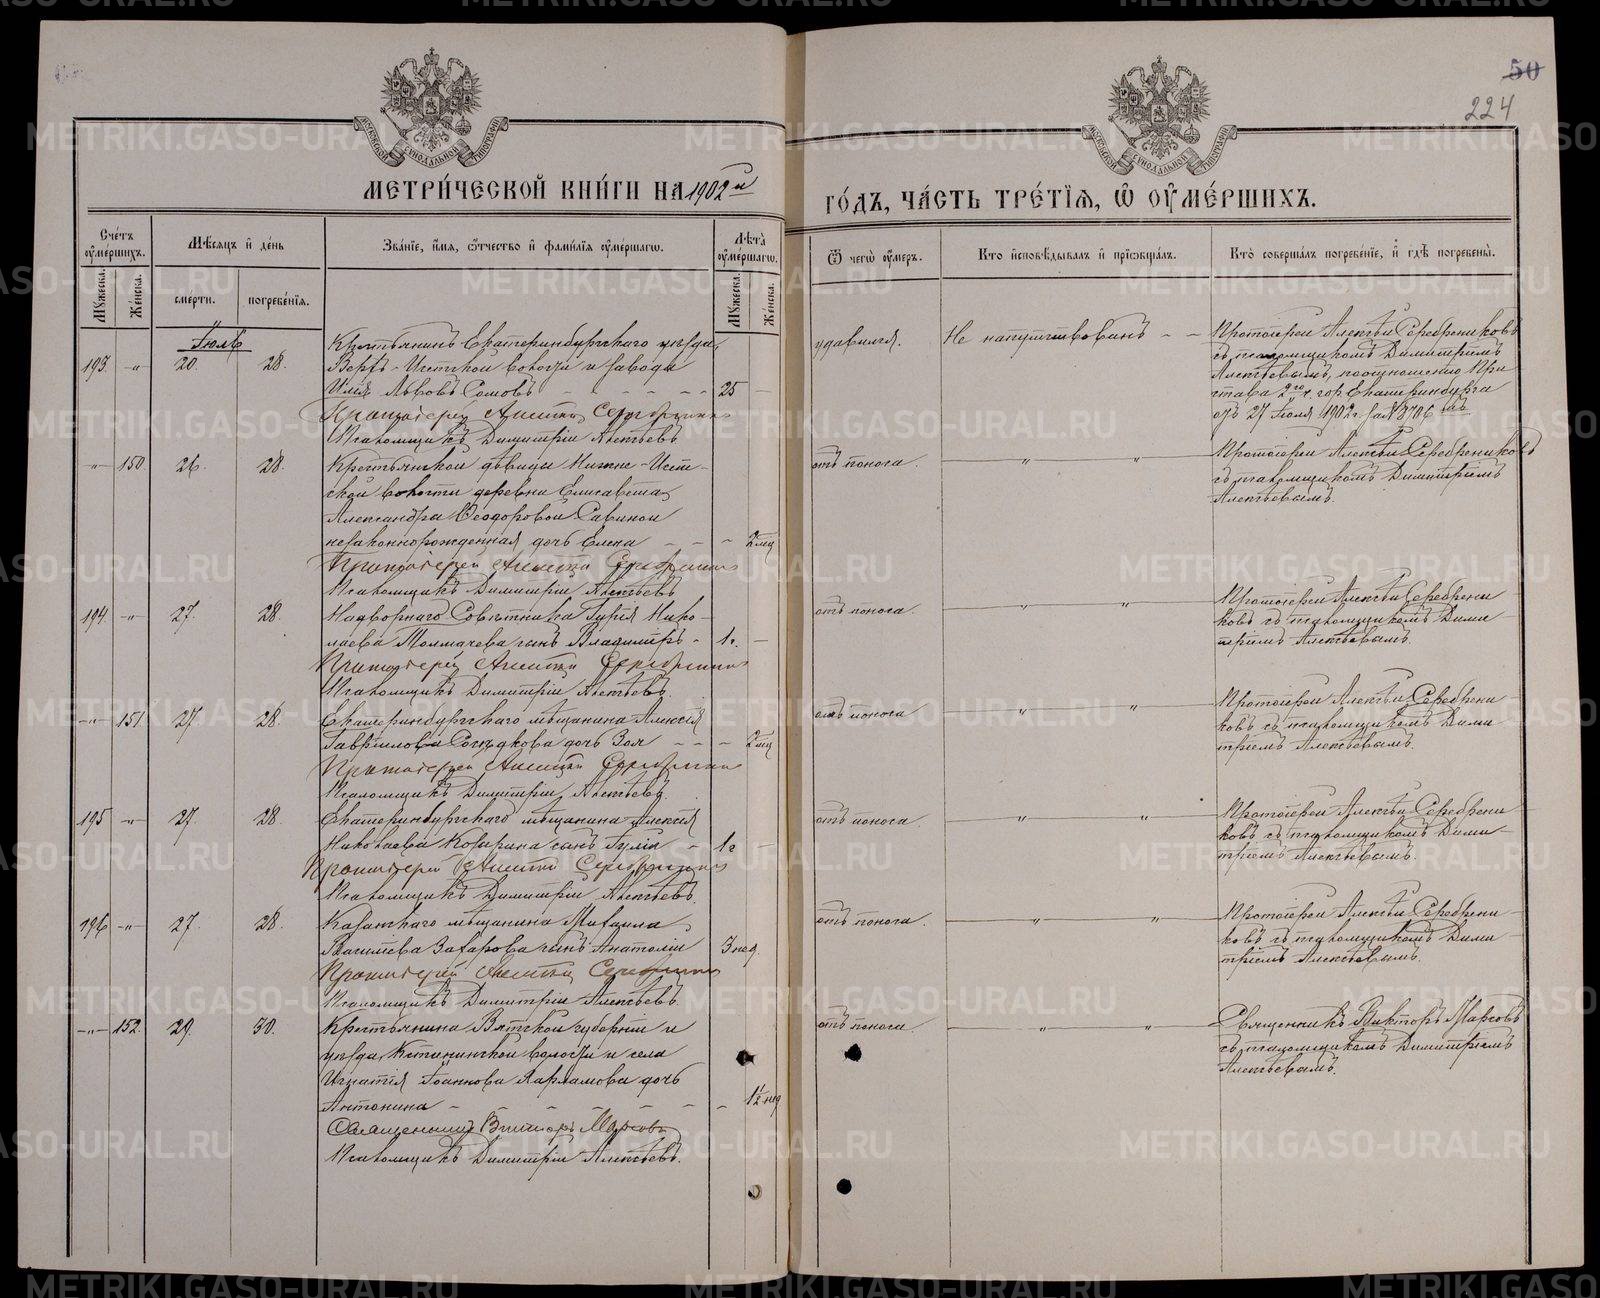 50
224
МОСКОВСКОЙ СѴНОДАЛЬНОЙ ТИПОГРАФІИ
МОСКОВСКОЙ СѴНОДАЛЬНОЙ ТИПОГРАФІИ
МЕТРИ́ЧЕСКОЙ КНИ́ГИ НА 1902й
ГО́ДЪ, ЧА́СТЬ ТРЕ́ТІЯ, Ѡ ОУМЕ́РШИХЪ.
Сче́тъ оумершихъ.
Мѣсяцъ и де́нь
Зва́ніе, и́мя, ѻтчество и фами́лія оумершагѡ.
Лѣта̀ оумершагѡ.
Мужеска.
Же́нска.
сме́рти.
погребе́нія.
Мужеска.
Же́нска.
Ѿ чегѡ оумеръ.
Кто исповѣдывалъ и пріѡбщалъ.
Кто̀ соверша́лъ погребе́ніе, и гдѣ̀ погребены̀.
Іюль
193. -"- 20. 28.
Крестьянинъ Екатеринбургскаго уѣзда,
Верхъ-Исетской волости и завода
Илія Львовъ Сомовъ - - - 25 -
Протоіерей Алексѣй Серебрениковъ
Псаломщикъ Димитрій Алексѣевъ.
удавился.
Не напутствованъ - -
Протоіерей Алексѣй Серебрениковъ
съ псаломщикомъ Димитріемъ
Алексѣевымъ, по отношенію При
става 2го ч. гор. Екатеринбурга
отъ 27 Іюля 1902 г. за № 3706
-"- 150. 26. 28.
Крестьянской дѣвицы Нижне-Исет-
ской волости деревни Елисавета,
Александры Ѳеодоровой Савиной
незаконнорожденная дочь Елена - - - 2 мц
Протоіерей Алексѣй Серебрениковъ
Псаломщикъ Димитрій Алексѣевъ
отъ поноса.
" "
Протоіерей Алексѣй Серебрениковъ
съ псаломщикомъ Димитріемъ
Алексѣевымъ.
194. -"- 27. 28.
Надворнаго Совѣтника Гурія Нико-
лаева Толмачева сынъ Владиміръ - 1 г. -
Протоіерей Алексѣй Серебрениковъ
Псаломщикъ Димитрій Алексѣевъ.
отъ поноса.
" "
Протоіерей Алексѣй Серебрени-
ковъ съ псаломщикомъ Дими-
тріемъ Алексѣевымъ.
-"- 151. 27. 28.
Екатеринбургскаго мѣщанина Алексія
Гаврилова дочь Зоя - - - 2 мц
Протоіерей Алексѣй Серебрениковъ
Псаломщикъ Димитрій Алексѣевъ.
отъ поноса
" "
Протоіерей Алексѣй Серебрени-
ковъ съ псаломщикомъ Дими-
тріемъ Алексѣевымъ.
195. -"- 27. 28.
Екатеринбургскаго мѣщанина Алексія
Николаева сынъ Іулій - 1 г -
Протоіерей Алексѣй Серебрениковъ
Псаломщикъ Димитрій Алексѣевъ.
отъ поноса.
" "
Протоіерей Алексѣй Серебрени-
ковъ съ псаломщикомъ Дими-
тріемъ Алексѣевымъ.
196 -"- 27. 28.
Казанскаго мѣщанина Михаила
Василіева Захарова сынъ Анатолій 3 нед.
Протоіерей Алексѣй Серебрениковъ
Псаломщикъ Димитрій Алексѣевъ.
отъ поноса.
" "
Протоіерей Алексѣй Серебрени-
ковъ съ псаломщикомъ Дими-
тріемъ Алексѣевымъ.
-"- 152. 29. 30.
Крестьянина Вятской губерніи и
уѣзда, Кстининской волости и села
Игнатія Іоаннова Варламова дочь
Антонина - - - - - - 1½ нед
Священникъ Викторъ Марсовъ
Псаломщикъ Димитрій Алексѣевъ.
отъ поноса.
" "
Священникъ Викторъ Марсовъ
съ псаломщикомъ Димитріемъ
Алексѣевымъ.
METRIKI.GASO-URAL.RU